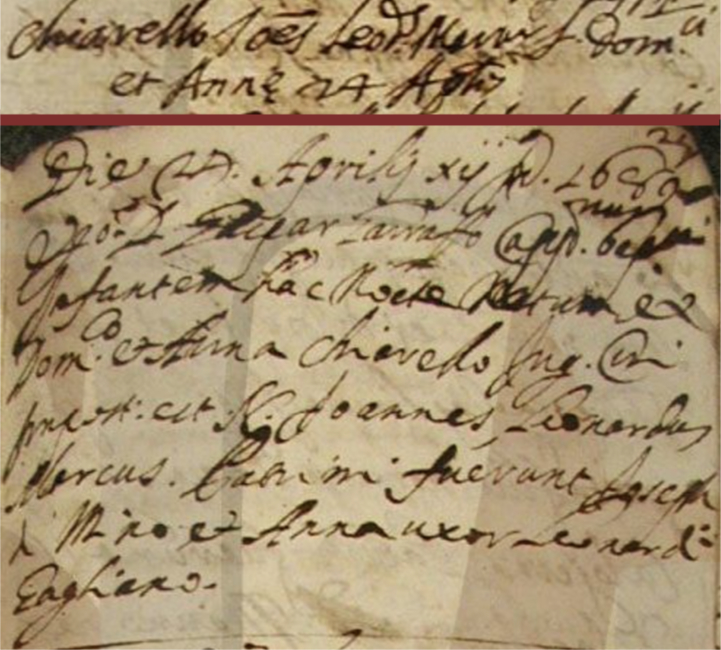 Chiarello Joēs Leod.s Marcus f. Dom.ci
et Annę 24 Aplis
24
Die 24. Aprilis xij Ind. 1689
Ego D. Gaspar Cap. bapti
Infantem hac Nocte Natum ex
Dom.co et Anna Chiarello Jug. Cui
impost. est N. Joannes Leonardus
Marcus. Patrini fuerunt Joseph
Mino et Anna uxor Leonardi
Gagliano.